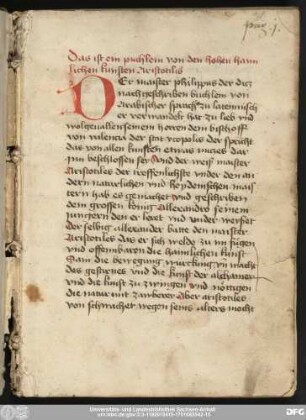 Das ist ein puchlein von den hohen haim
lichen kunsten Aristotilis
DEr maister philippus der dicz
nachgeschriben buchlein von
Arabischer sprach zu lateinnisch
er verwandelt hat zu lieb vnd
wolgeuallen seinem herren dem bischoff
von valencia der stat tripolis der spricht
das von allen kunsten etwas in disem
sey Vnd der weis maister
Aristotiles der treffenlichste vnder den an
dern naturlichen vnd heydenischen mais
tern hab es gemachet vnd geschriben
dem grossen konig Allexandro seinem
jungern den er leret vnd vnder weyset
der selbig allexander batte den maister
Aristotiles das er sich wolde zu im fugen
vnd offennbaren die haimlichen kunst
Sam die bewegung wurckung vnd macht
des gestirnes vnd die kunst der alchamey
vnd die kunst zu zwingen vnd notigen
die natur mit zauberey Aber aristotiles
von schwacheit wegen seins alters mocht
Universitäts- und Landesbibliothek Sachsen-Anhalt
DFG